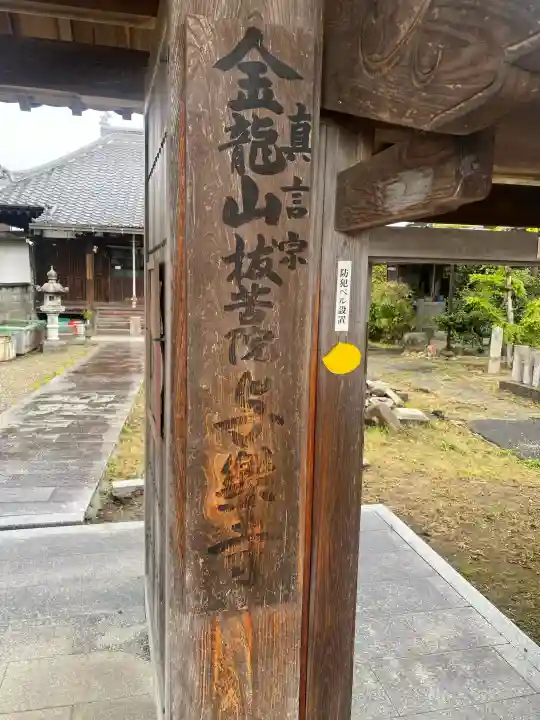 真言宗
金龍山拔苦院与樂寺
防犯ベル設置